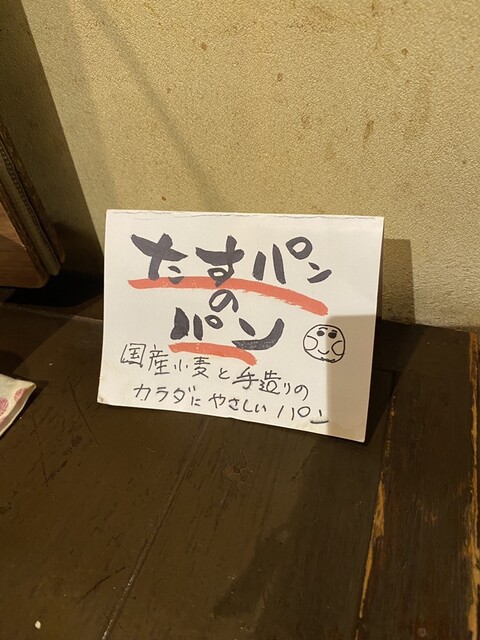 たすパン
の
パン
国産小麦と手造りの
カラダにやさしいパン